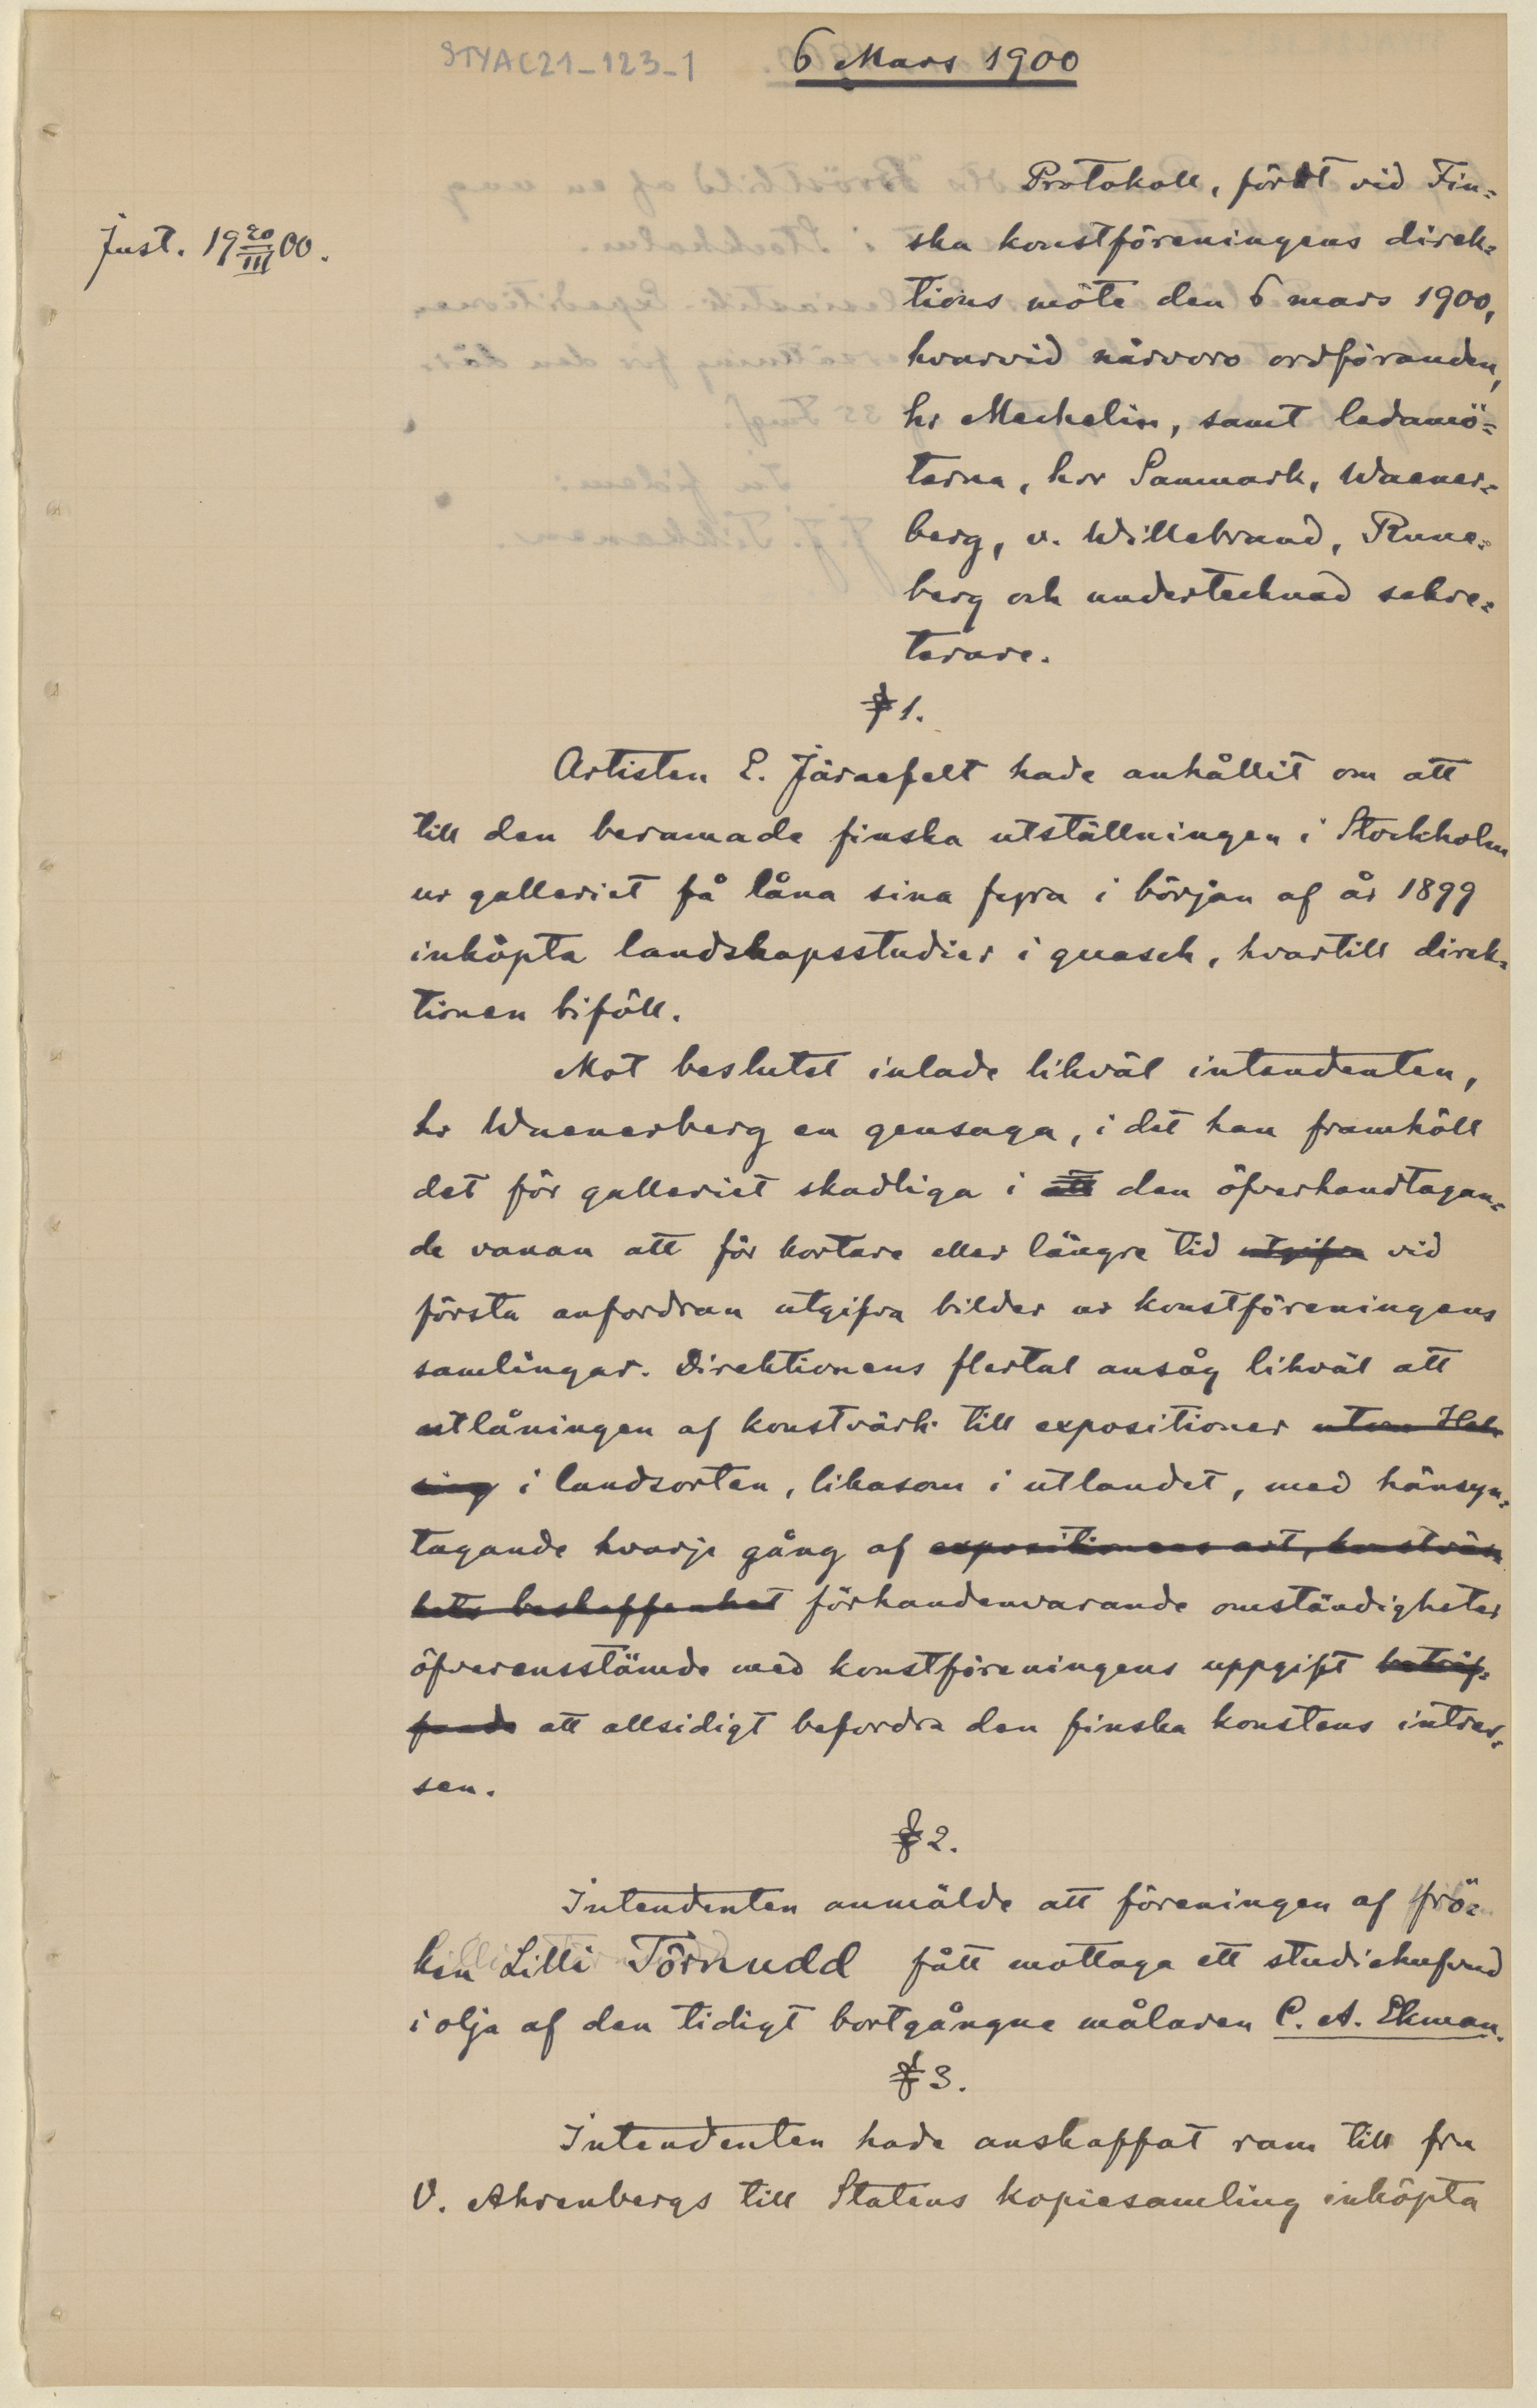 STYAC21_123_1
6 Mars 1900
Just. 19 20/III 00.
Protokoll, fördt vid Fin=
ska konstföreningens direk=
tions möte den 6 mars 1900,
hvarvid närvoro ordföranden,
hr Mechelin, samt ledamö=
terna, hrr Sanmark, Waener=
berg, v. Willebrand, Rune=
berg och undertecknad sekre=
terare.
§ 1.
Artisten E. Järnefelt hade anhållit om att
till den beramade finska utställningen i Stockholm
ur galleriet få låna sina fyra i början af år 1899
inköpta landskapsstudier i guasch, hvartill direk=
tionen biföll.
Mot beslutet inlade likväl intendenten,
hr Waenerberg en gensaga, i det han framhöll
det för galleriet skadliga i att den öfverhandtagan=
de vanan att för kortare eller längre tid utgifva vid
första anfordran utgifva bilder ur konstföreningens
samlingar. Direktionens flertal ansåg likväl att
utlåningen af konstvärk till expositioner utom Hel=
sing i landsorten, likasom i utlandet, med hänsyn=
tagande hvarje gång af expositionens art, konstvär
kets beskaffenhet förhandenvarande omständigheter
öfverensstämde med konstföreningens uppgift beträf=
fande att allsidigt befordra den finska konstens intres=
sen.
§ 2.
Intendenten anmälde att föreningen af frö=
ken Lilli Törnudd fått mottaga ett studiehufvud
i olja af den tidigt bortgångne målaren C. A. Ekman.
§ 3.
Intendenten hade anskaffat ram till fru
V. Ahrenbergs till Statens kopiesamling inköpta